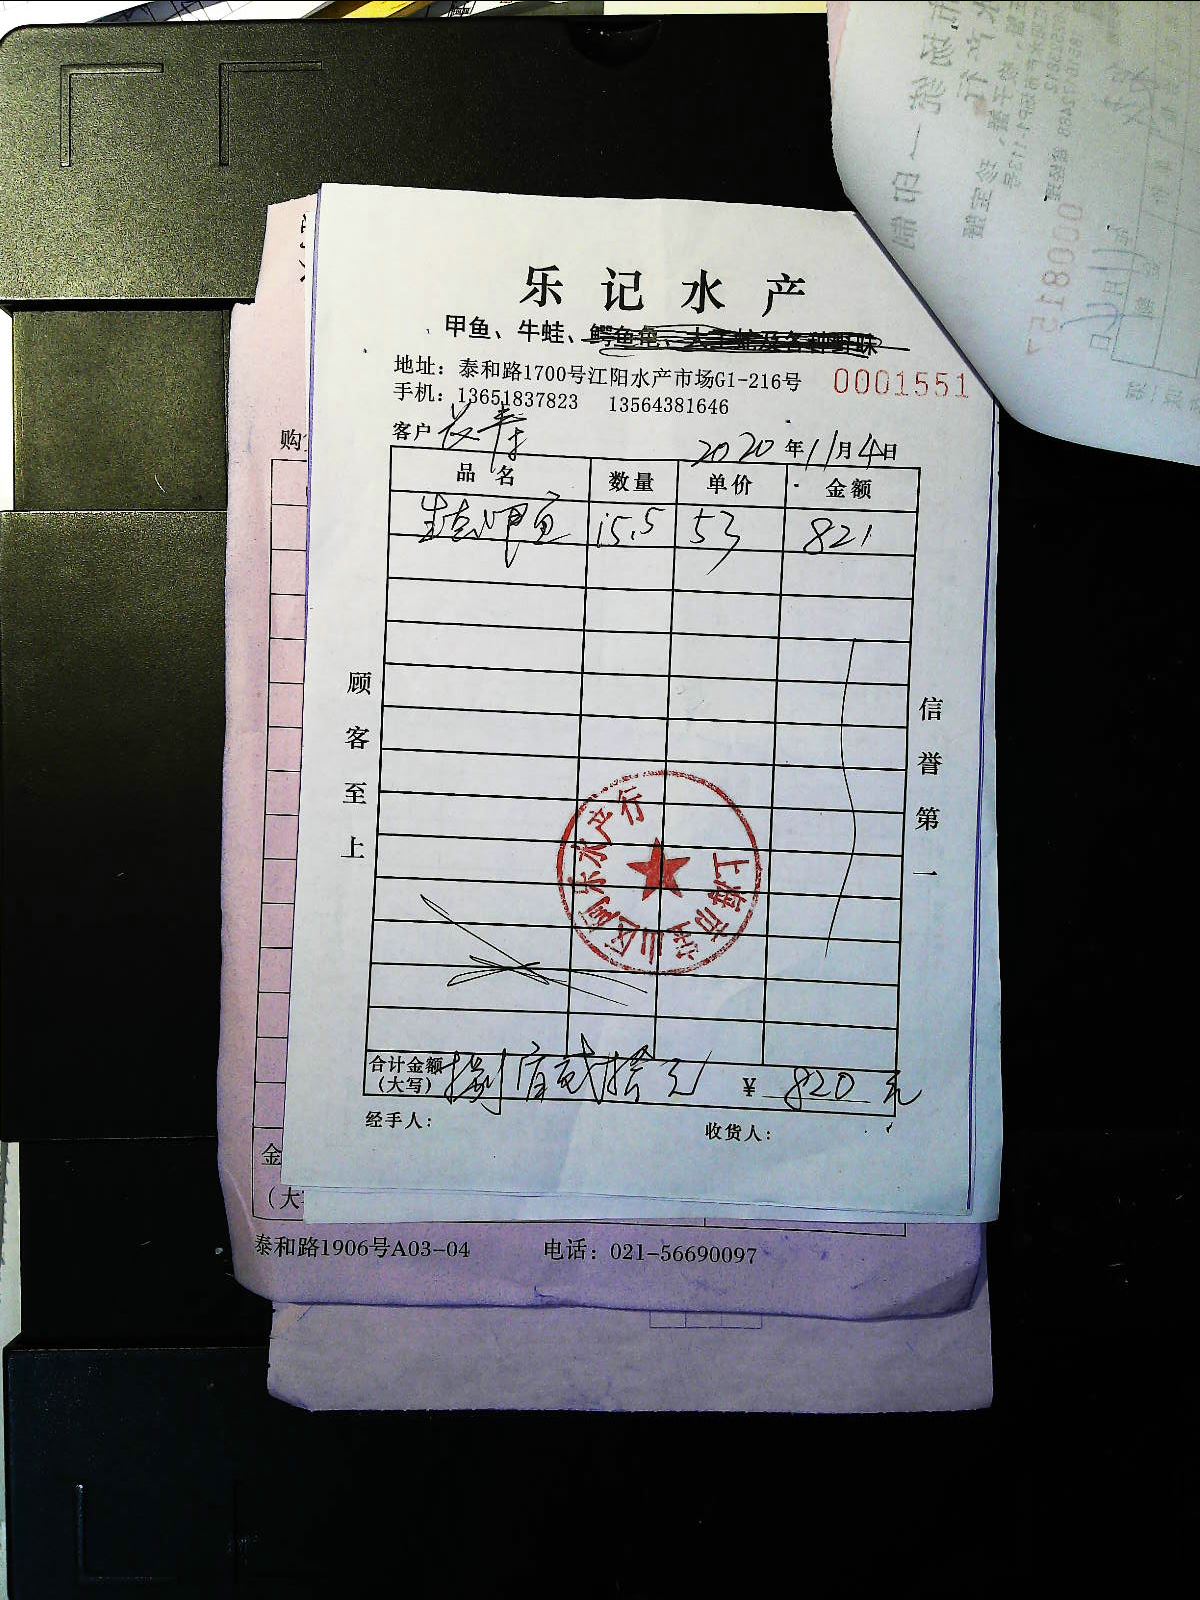 乐记水产
甲鱼、牛蛙、鳄鱼龟、大王蛇及各种野味
地址：泰和路1700号江阳水产市场G1-216号
0001551
手机：13651837823 13564381646
客户 长寿
2020年11月4日
品名 数量 单价 金额
生态甲鱼 15.5 53 821
顾客至上
信誉第一
上海市宝山区阿乐水产行
合计金额（大写） 捌佰贰拾元 ¥ 820 元
经手人： 收货人：
购
金
（大
泰和路1906号A03-04 电话：021-56690097
000815